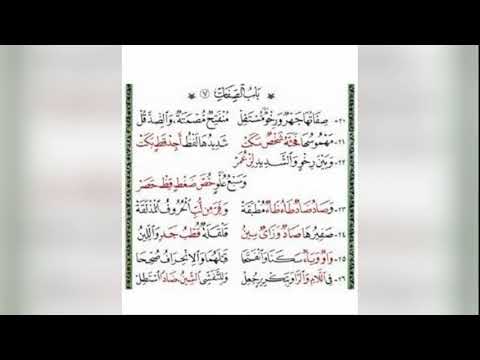 بَابُ الصِّفَاتِ (٧)
٢٠- صِفَاتُهَا جَهْرٌ وَرِخْوٌ مُسْتَفِلْ مُنْفَتِحٌ مُصْمَتَةٌ، وَالضِّدَّ قُلْ
٢١- مَهْمُوسُهَا فَحَثَّهُ شَخْصٌ سَكَتْ شَدِيدُهَا لَفْظُ أَجِدْ قَطٍ بَكَتْ
٢٢- وَبَيْنَ رِخْوٍ وَالشَّدِيدِ لِنْ عُمَرْ
وَسَبْعُ عُلْوٍ خُصَّ ضَغْطٍ قِظْ حَصَرْ
٢٣- وَصَادُ ضَادٌ طَاءُ ظَاءٌ مُطْبَقَهْ وَفِرَّ مِنْ لُبِّ الْحُرُوفُ الْمُذْلَقَهْ
٢٤- صَفِيرُهَا صَادٌ وَزَايٌ سِينُ قَلْقَلَةٌ قُطْبُ جَدٍ، وَاللِّينُ
٢٥- وَاوٌ وَيَاءٌ، سَكَنَا وَانْفَتَحَا قَبْلَهُمَا وَالِانْحِرَافُ صُحِّحَا
٢٦- فِي اللَّامِ وَالرَّا وَبِتَكْرِيرٍ جُعِلْ وَلِلتَّفَشِّي الشِّينُ، ضَادًا اسْتُطِلْ